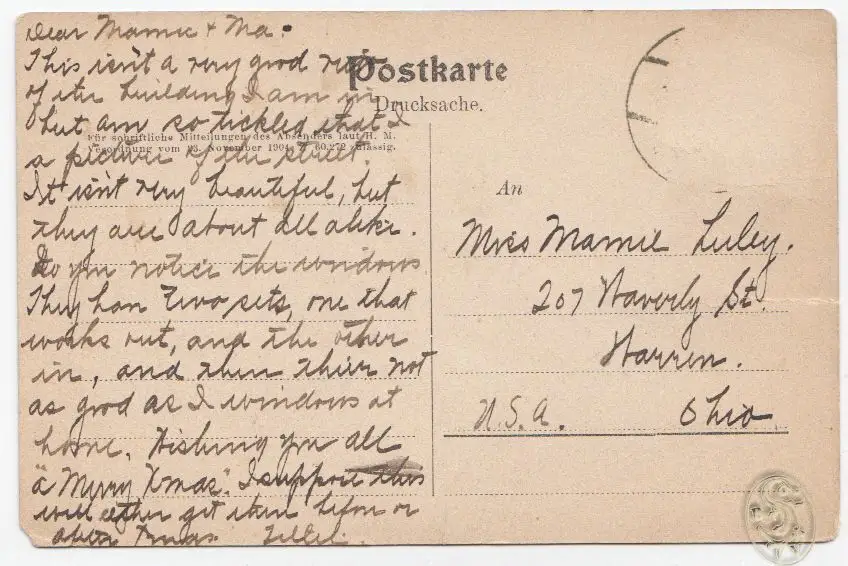 Dear Mamie & Ma:
This isn't a very good
of the building I am in
but am so tickled that I
a picture of the street.
It isn't very beautiful, but
they are about all alike.
Do you notice the windows
They have two sets, one that
works out, and the other
in, and then their not
as good as windows at
home. Wishing you all
"a Merry Xmas". I suppose this
will either get there before or
after Xmas.
Postkarte
Drucksache.
Für schriftliche Mitteilungen des Absenders laut H. M.
Verordnung vom November 1904, Z. 60.272 zulässig.
An
Miss Mamie Luley.
207 Waverly St.
Warren.
U.S.A. Ohio